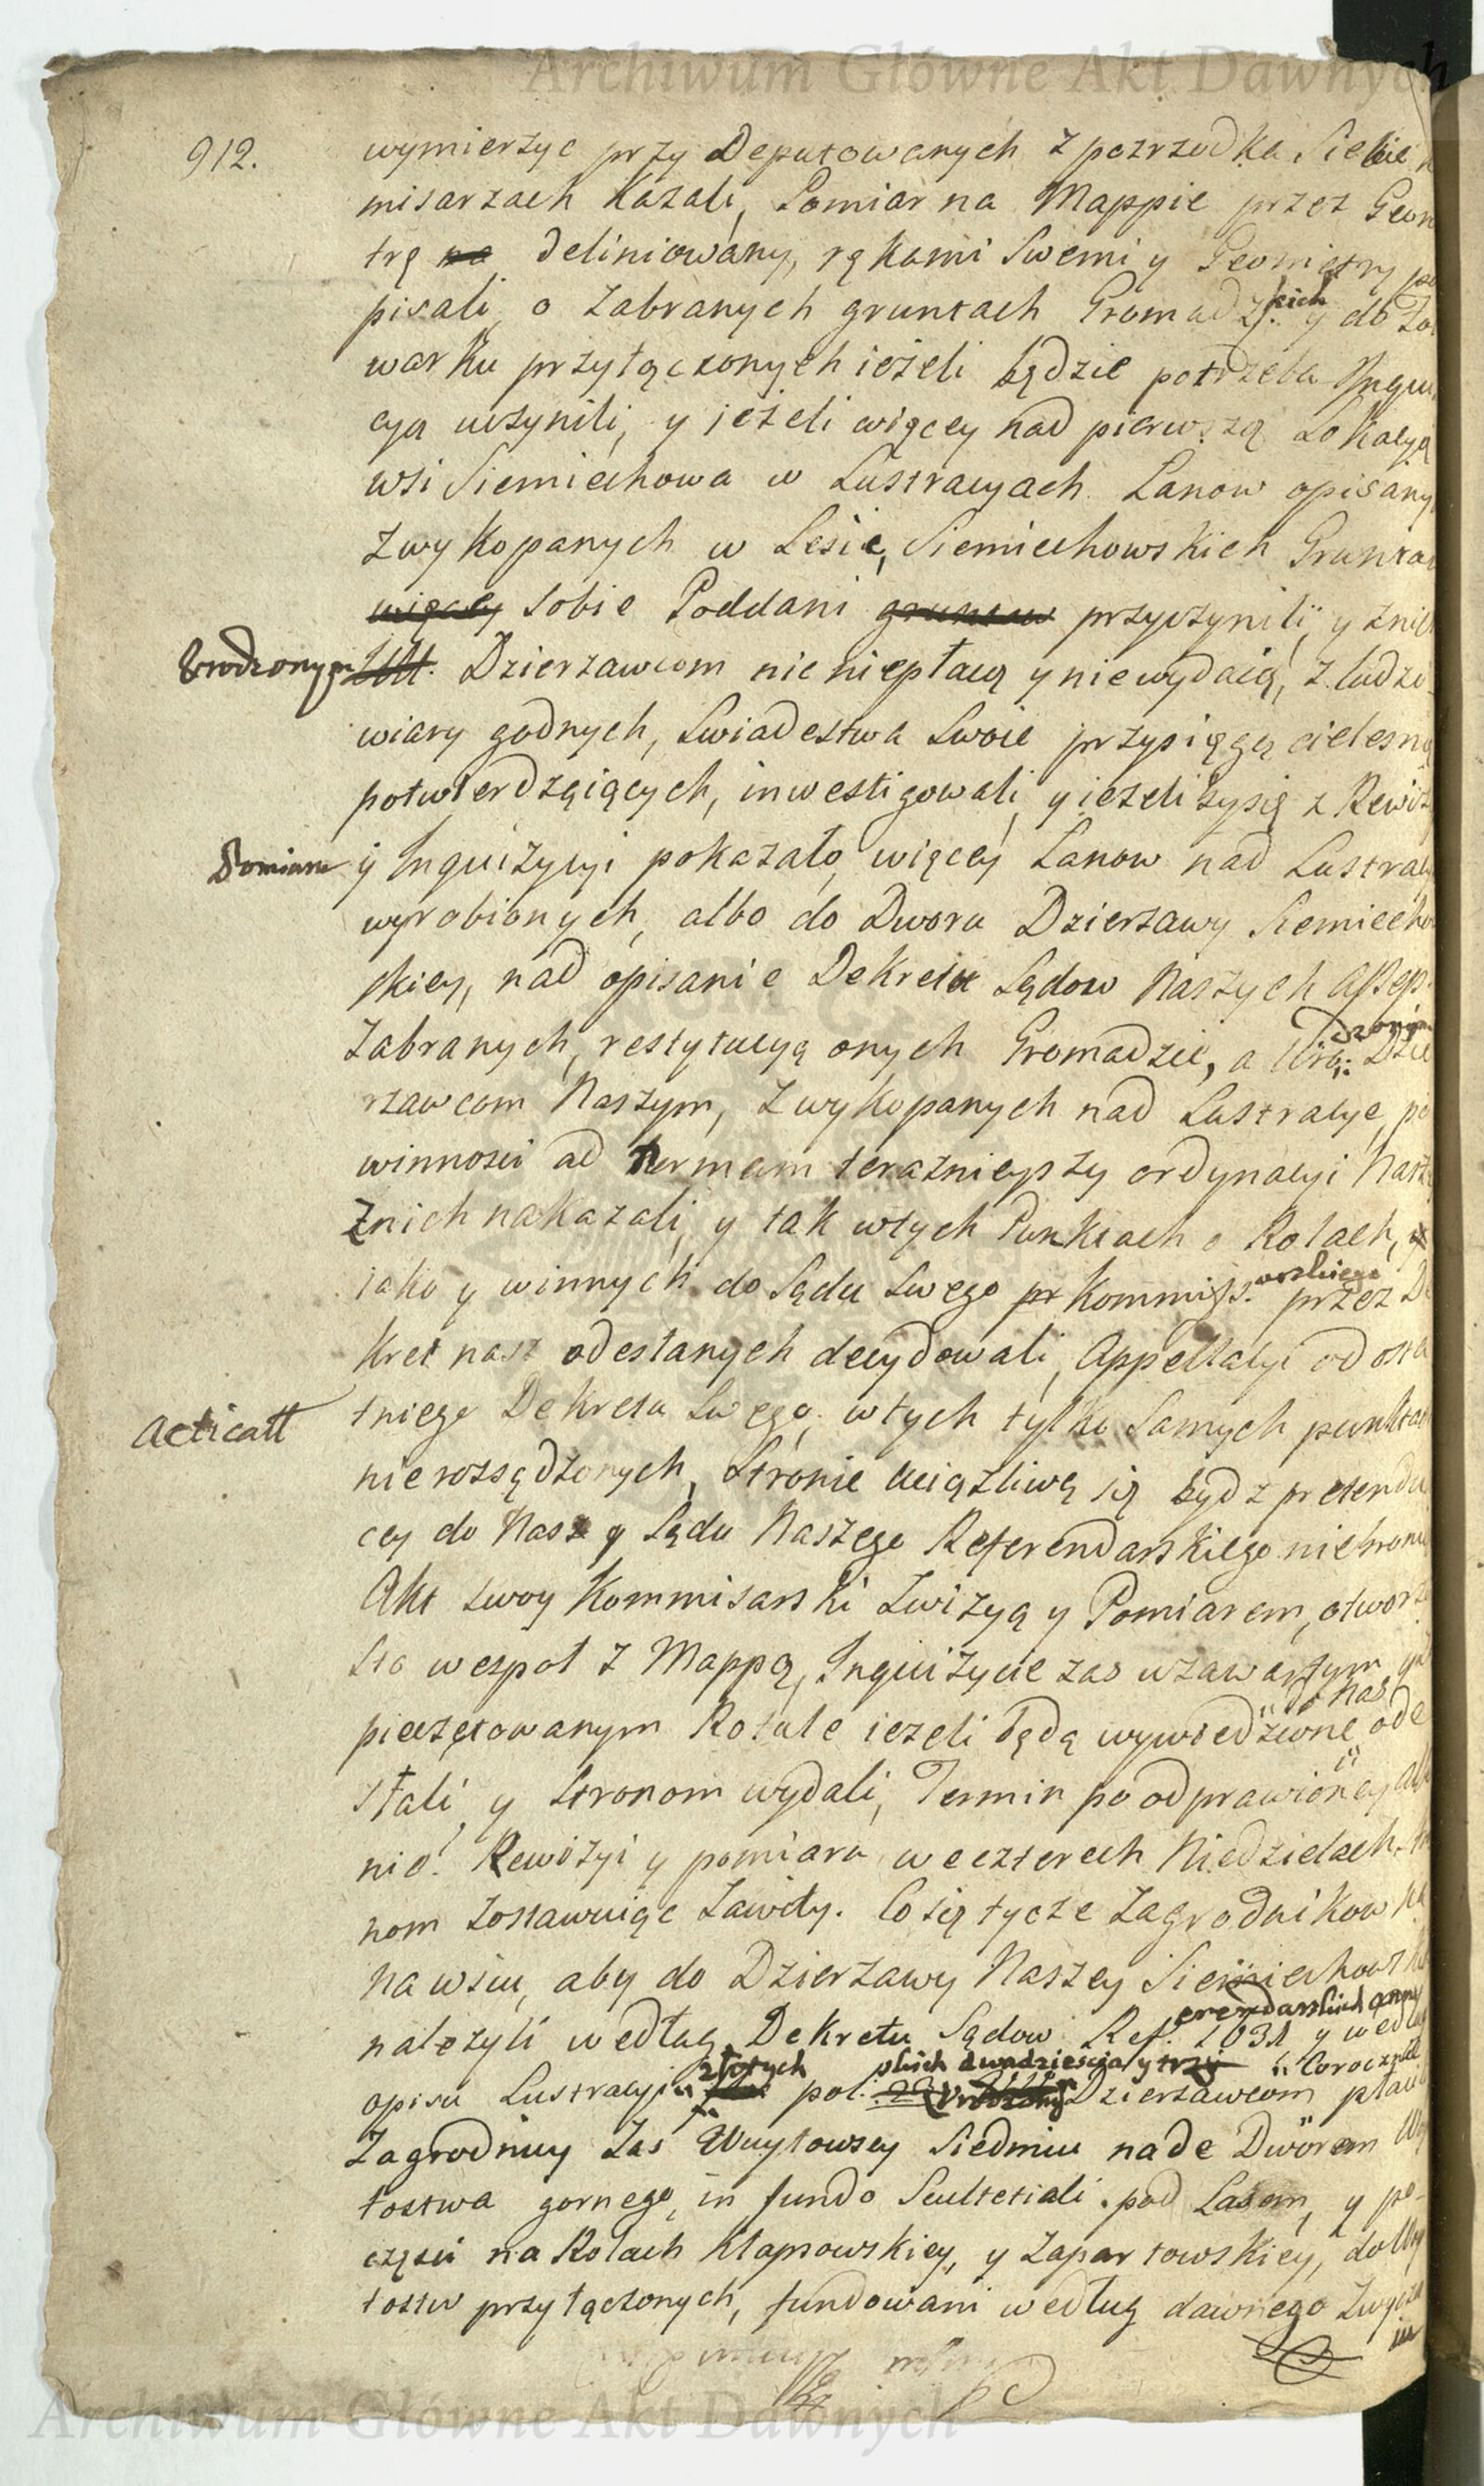 Archiwum Główne Akt Dawnych
912.
wymierzyc przy Deputowanych z pozrzodka Siebie
misarzach kazali, Pomiar na Mappie przez Geom
trę na deliniowany, rękami Swemi y Geometry po
pisali, o zabranych gruntach Gromadz. kich y do Fo
warku przyłączonych ieżeli będzie potrzeba Inqui
cyą uczynili, y jeżeli więcey nad pierwszą Lokacyą
wsi Siemiechowa w Lustracyach Lanow opisany
z wykopanych w Lesie, Siemiechowskich Grunta
więcey Sobie Poddani gruntow przyczynili, y znich
Urodzonym Dzierzawcom nic niepłacą y niewydaią, z ludzi
wiary godnych, Swiadectwa Swoie przysięgą cielesną
potwierdzaiących, inwestigowali, y ieżeliby się z Rewiz
Pomiaru y Inquizycyi pokazało, więcey Lanow nad Lustracy
wyrobionych, albo do Dworu Dzierzawy Siemiecho
skiey, nad opisanie Dekretu Sądow Naszych Assess.
zabranych, restytucyą onych Gromadzie, a Uro: dzonym Dzie
rzawcom Naszym, z wykopanych nad Lustracye, po
winnosci ad normam terazniejszy ordynacyi Nasz
znich nakazali, y tak wtych Punktach o Rolach, y
iako y winnych do Sądu Swego pr Kommiss. arskiego przez De
kret nasz odesłanych decydowali, Appellacyi od osta
tniego Dekretu Swego, wtych tylko Samych punktach
Acticatt
nierozsądzonych, Stronie uciążliwą się bydz pretendu
cey do Nas y Sądu Naszego Referendarskiego niebroni
Akt Swoy Kommisarski z wizyą y Pomiarem, otworz
sto wespoł z Mappą, Inquizycie zas w zawartym y
pieczętowanym Rotule ieżeli będą wywiedzione do Nas ode
słali, y Stronom wydali, Termin po odprawioney
nio. Rewizyi y pomiaru w czterech Niedzielach
nom zostawuiąc zawity. Co się tycze zagrodnikow na
nawsiu, aby do Dzierzawy Naszey Siemiechows
należyli według Dekretu Sądow Ref. erendarskich anny 1631 y według
opisu Lustracyi złotych pol. skich dwadziescia y trzy 23 Urodzonym Dzierzawcom Corocznie płacili
Zagrodnicy zas Wuytowscy Siedmiu nade Dworem Wuy
tostwa gornego, in fundo Scultetiali pod Lasem, y po
częsci na Rolach Kłapsowskiey, y Zapartowskiey, do Wuy
tostw przyłączonych, fundowani według dawnego zwycza
iu
Archiwum Główne Akt Dawnych